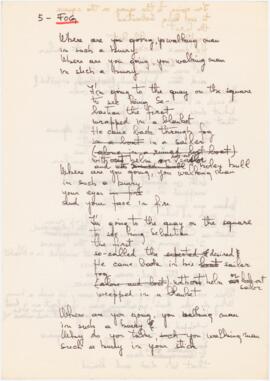 5 - FOG
Where are you going, you walking man
in such a hurry
Where are you going, you walking man
in such a hurry
I'm going to the quay on the square
to see king Se-
bastian the first
wrapped in a blanket
He came back through fog
a sailor
(alone in a
with helm or
Where are you going, you walking man
in such a hurry
your eyes
and your face in fire
I'm going to the quay on the square
to see king Sebastian
the first
so-called the expected & desired
He came back in his sailor
fog
(alone and lost) without helm or
wrapped in a blanket
Where are you going, you walking man
in such a hurry &
Why do you take you walking man
such a hurry in your